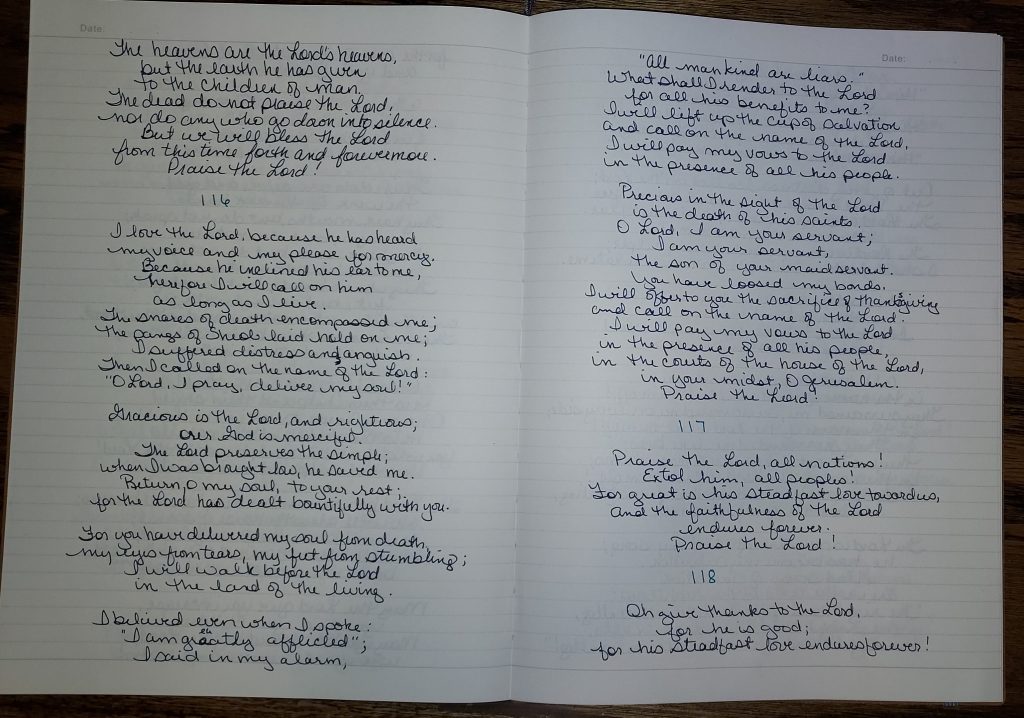 Date:
The heavens are the Lord's heavens,
but the earth he has given
to the children of man.
The dead do not praise the Lord,
nor do any who go down into silence.
But we will bless the Lord
from this time forth and forevermore.
Praise the Lord!
116
I love the Lord, because he has heard
my voice and my please for mercy.
Because he inclined his ear to me,
therefore I will call on him
as long as I live.
The snares of death encompassed me;
the pangs of Sheol laid hold on me;
I suffered distress and anguish.
Then I called on the name of the Lord:
"O Lord, I pray, deliver my soul!"
Gracious is the Lord, and righteous;
our God is merciful.
The Lord preserves the simple;
when I was brought low, he saved me.
Return, O my soul, to your rest;
for the Lord has dealt bountifully with you.
For you have delivered my soul from death,
my eyes from tears, my feet from stumbling;
I will walk before the Lord
in the land of the living.
I believed even when I spoke:
"I am greatly afflicted";
I said in my alarm,
Date:
"All mankind are liars."
What shall I render to the Lord
for all his benefits to me?
I will lift up the cup of salvation
and call on the name of the Lord,
I will pay my vows to the Lord
in the presence of all his people.
Precious in the sight of the Lord
is the death of his saints.
O Lord, I am your servant;
I am your servant,
the son of your maidservant.
You have loosed my bonds.
I will offer to you the sacrifice of thanksgiving
and call on the name of the Lord.
I will pay my vows to the Lord
in the presence of all his people,
in the courts of the house of the Lord,
in your midst, O Jerusalem.
Praise the Lord!
117
Praise the Lord, all nations!
Extol him, all peoples!
For great is his steadfast love toward us,
and the faithfulness of the Lord
endures forever.
Praise the Lord!
118
Oh give thanks to the Lord,
for he is good;
for his steadfast love endures forever!